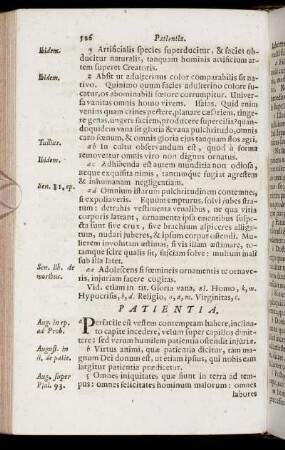 526 Patientia.
Ibidem. y Artificialis species superducitur, & facies ob-
ducitur naturalis, tanquam hominis artificium ar-
tem superet Creatoris.
Ibidem. z Absit ut adulterinus color comparabilis sit na-
tivo. Quinimo quum facies adulterino colore fu-
catur, os abominabili fœtore corrumpitur. Univer-
sa vanitas omnis homo vivens. Isaias. Quid enim
veniens quam crines pectere, planare cæsariem, tinge-
re genas, ungere faciem, producere supercilia? quan-
doquidem vana sit gloria & vana pulchritudo, omnis
caro fœnum, & omnis gloria ejus tanquam flos agri.
Tullius. ab In cultu observandum est, quod à forma
removentur omnis viro non dignus ornatus.
Ibidem. ac Adhibenda est autem munditia non odiosa,
neque exquisita nimis, tantumque fugiat agrestem
& inhumanam negligentiam.
Sen. 31. ep. ad Omnium istarum pulchritudinem contemnes,
si expoliaveris. Equum empturus, solvi jubes stra-
tum: detrahis vestimenta venalibus, ne qua vitia
corporis lateant, ornamenta ipsa emtibus suspe-
cta sunt sive crus, sive brachium aspiceres alliga-
tum, nudari juberes, & ipsum corpus ostendi. Mu-
lierem involutam æstimas, si vis illam æstimare,
tamque scire qualis sit, fasciam solve: multum mali
sub illa latet.
Sen. lib. de moribus. ae Adolescens si femineis ornamentis te ornave-
ris, injuriam facere cogitas.
Vid. etiam in tit. Gloria vana, al. Homo, k, w.
Hypocrisis, b, d. Religio, u, a, m. Virginitas, c.
PATIENTIA.
Aug. in ep. ad Prob. a Perfacile est vestem contemptam habere, inclina-
to capite incedere, velum super capillos dimit-
tere: sed verum humilem patientia ostendit injuriæ.
August. in li. de patie. b Virtus animi, quæ patientia dicitur, tam ma-
gnum Dei donum est, ut etiam ipsius, qui nobis eam
largitur patientia prædicetur.
Aug. super Psal. 93. c Omnes iniquitates quæ sunt in terra ad tem-
pus: omnes felicitates hominum malorum: omnes
labores